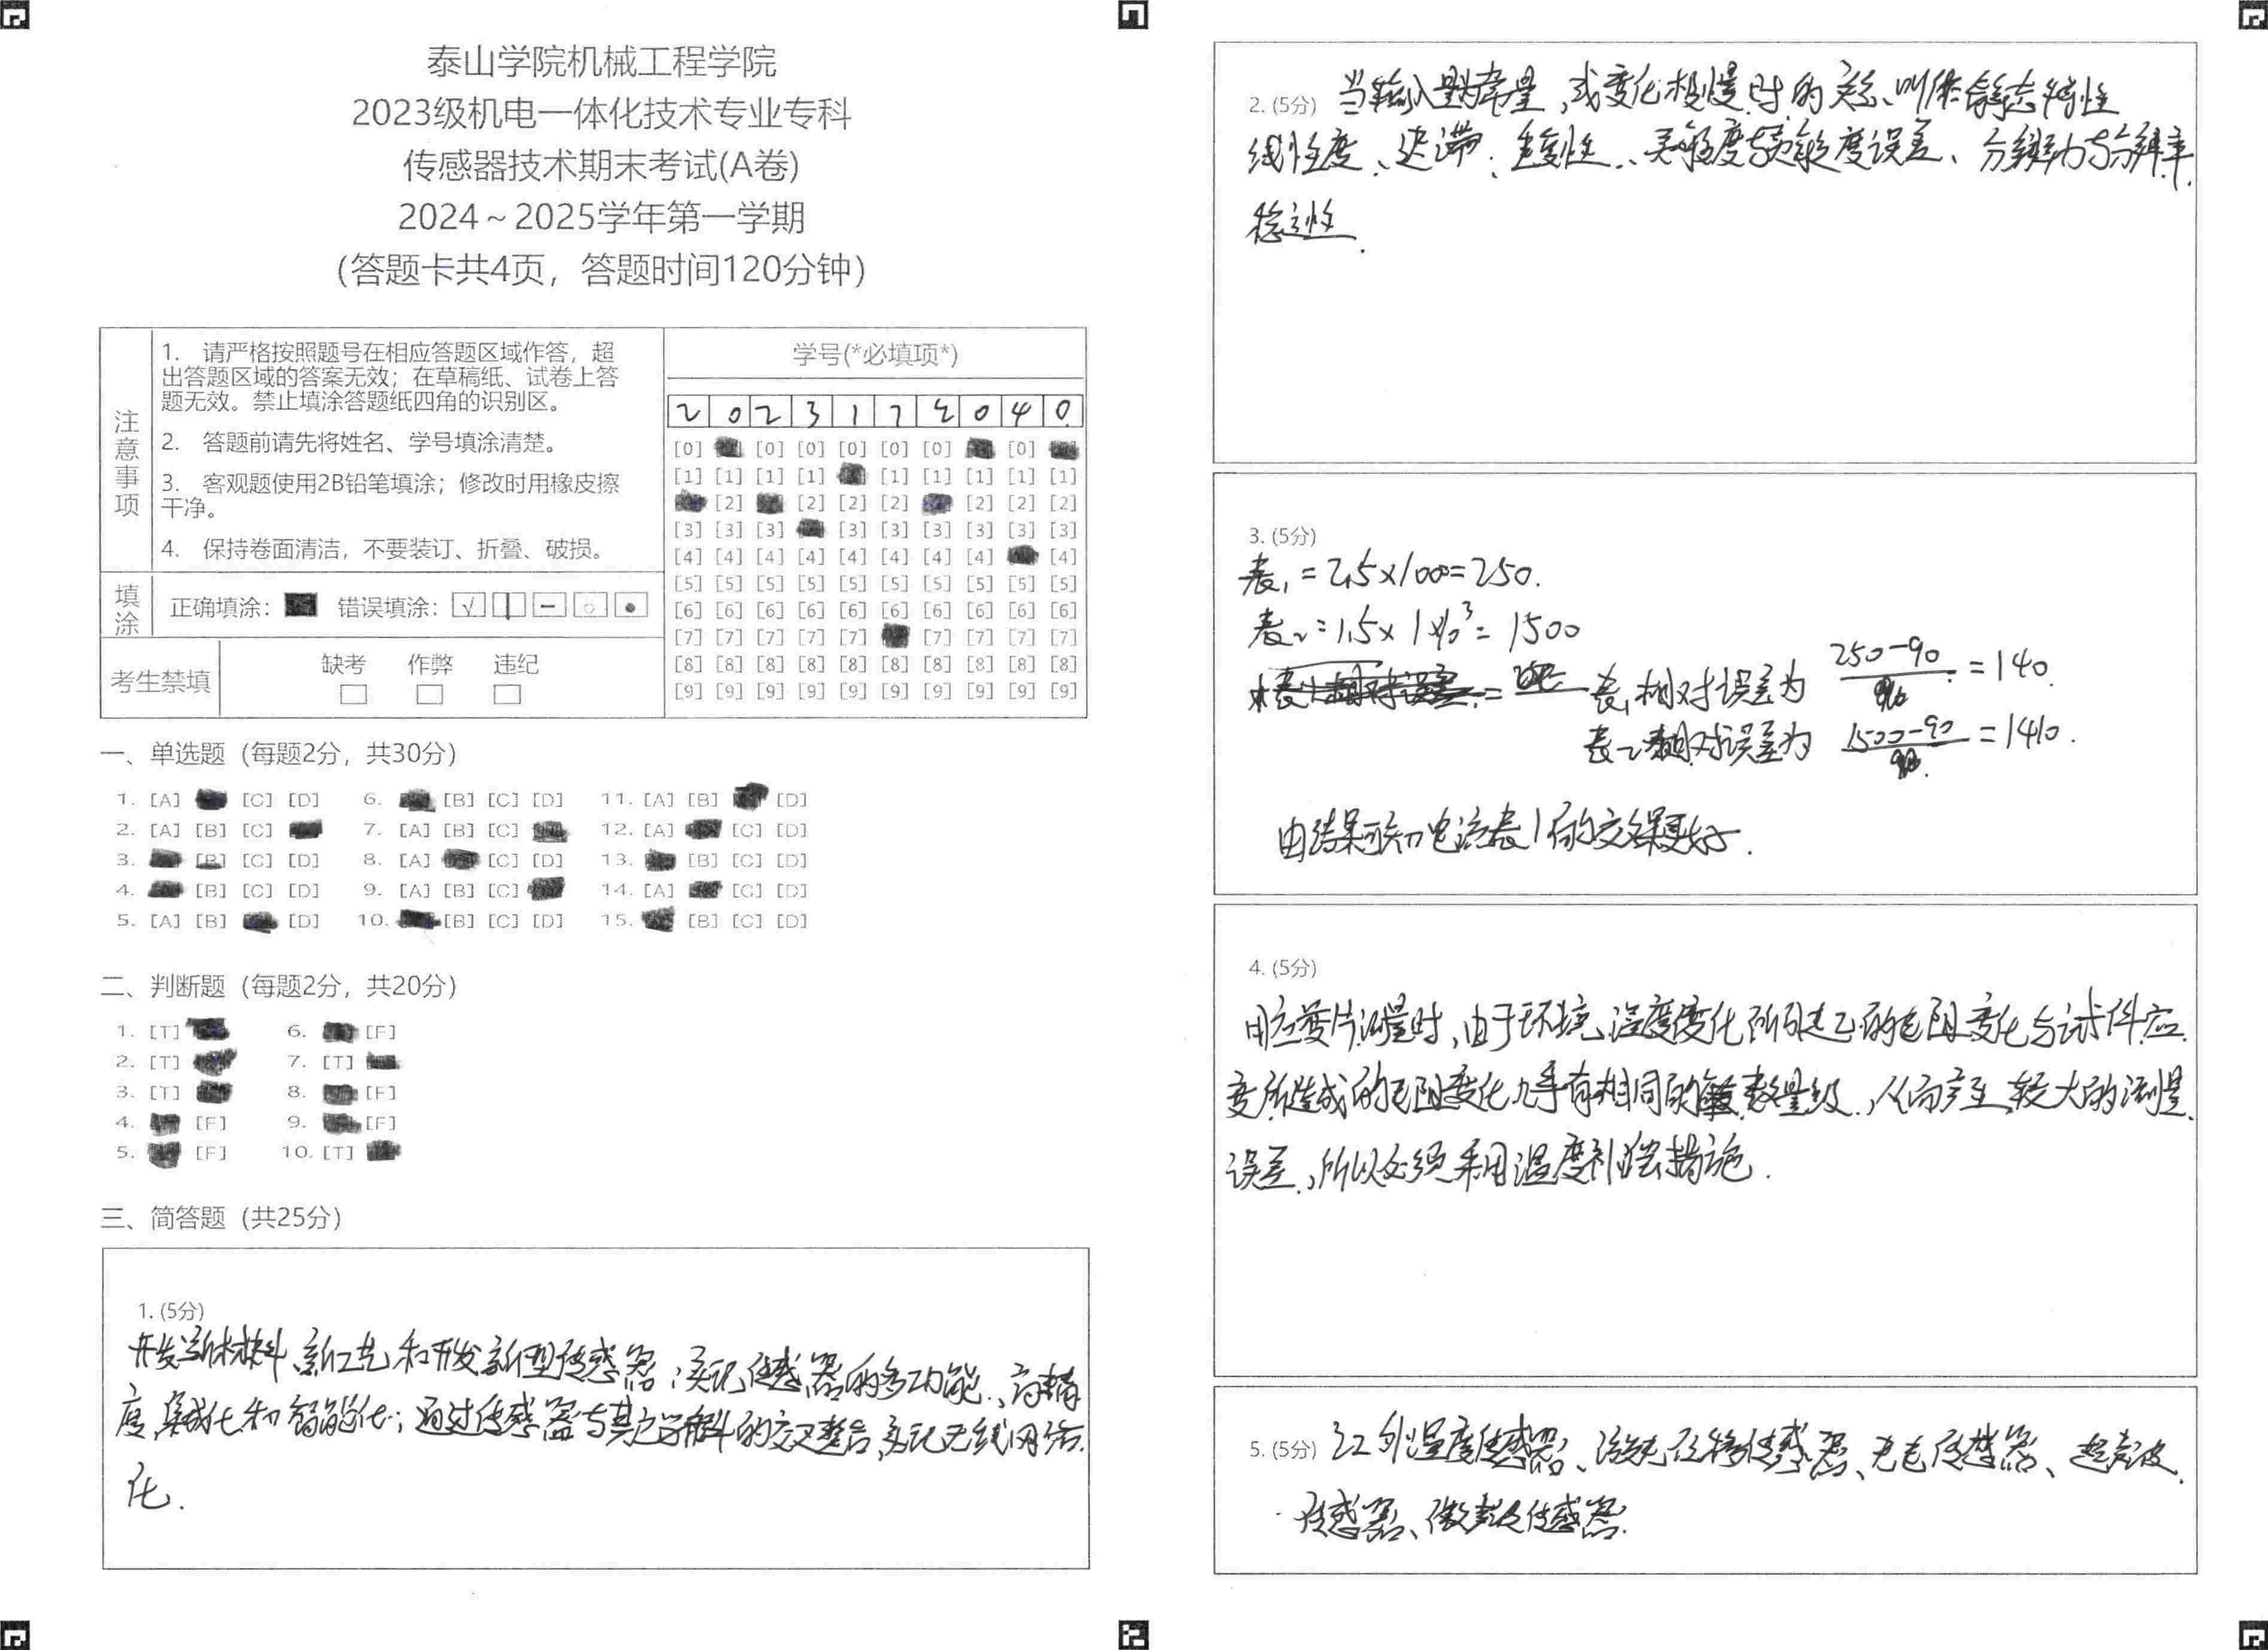 泰山学院机械工程学院
2023级机电一体化技术专业专科
传感器技术期末考试(A卷)
2024～2025学年第一学期
(答题卡共4页，答题时间120分钟)
注意事项
1. 请严格按照题号在相应答题区域作答，超
出答题区域的答案无效；在草稿纸、试卷上答
题无效。禁止填涂答题纸四角的识别区。
2. 答题前请先将姓名、学号填涂清楚。
3. 客观题使用2B铅笔填涂；修改时用橡皮擦
干净。
4. 保持卷面清洁，不要装订、折叠、破损。
填涂
正确填涂： 错误填涂：
考生禁填
缺考 作弊 违纪
学号(*必填项*)
2 0 2 3 1 7 2 0 4 0
[0] [0] [0] [0] [0] [0] [0]
[1] [1] [1] [1] [1] [1] [1] [1] [1]
[2] [2] [2] [2] [2] [2] [2]
[3] [3] [3] [3] [3] [3] [3] [3] [3]
[4] [4] [4] [4] [4] [4] [4] [4] [4]
[5] [5] [5] [5] [5] [5] [5] [5] [5] [5]
[6] [6] [6] [6] [6] [6] [6] [6] [6] [6]
[7] [7] [7] [7] [7] [7] [7] [7] [7]
[8] [8] [8] [8] [8] [8] [8] [8] [8] [8]
[9] [9] [9] [9] [9] [9] [9] [9] [9] [9]
一、单选题 (每题2分，共30分)
1. [A] [C] [D] 6. [B] [C] [D] 11. [A] [B] [D]
2. [A] [B] [C] 7. [A] [B] [C] 12. [A] [C] [D]
3. [B] [C] [D] 8. [A] [C] [D] 13. [B] [C] [D]
4. [B] [C] [D] 9. [A] [B] [C] 14. [A] [C] [D]
5. [A] [B] [D] 10. [B] [C] [D] 15. [B] [C] [D]
二、判断题 (每题2分，共20分)
1. [T] 6. [F]
2. [T] 7. [T]
3. [T] 8. [F]
4. [F] 9. [F]
5. [F] 10. [T]
三、简答题 (共25分)
1. (5分)
开发新材料、新工艺和开发新型传感器；实现传感器的多功能、高精
度、集成化和智能化；通过传感器与其它学科的交叉整合，实现无线网络
化.
2. (5分) 当输入量为常量，或变化极慢时的关系、叫作静态特性
线性度、迟滞、重复性、灵敏度与灵敏度误差、分辨力与分辨率
稳定性.
3. (5分)
表1=2.5×100=250.
表2=1.5×1×10³=1500
表1相对误差为 250-90/90 =140.
表2相对误差为 1500-90/90 =1410.
由结果可知电流表1的效果更好.
4. (5分)
用应变片测量时，由于环境温度变化所引起的电阻变化与试件应
变所造成的电阻变化几乎有相同的数量级，从而产生较大的测量
误差，所以必须采用温度补偿措施.
5. (5分) 红外温度传感器、激光位移传感器、光电传感器、超声波
传感器、微波传感器.